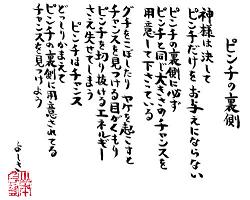 ピンチの裏側
神様は決して
ピンチだけをお与えにならない
ピンチの裏側に必ず
ピンチと同じ大きさのチャンスを
用意して下さっている
グチをこぼしたりヤケを起こすと
チャンスを見つける目がくもり
ピンチを切り抜けるエネルギー
さえ失せてしまう
ピンチはチャンス
どっしりかまえて
ピンチの裏側に用意されてる
チャンスを見つけよう